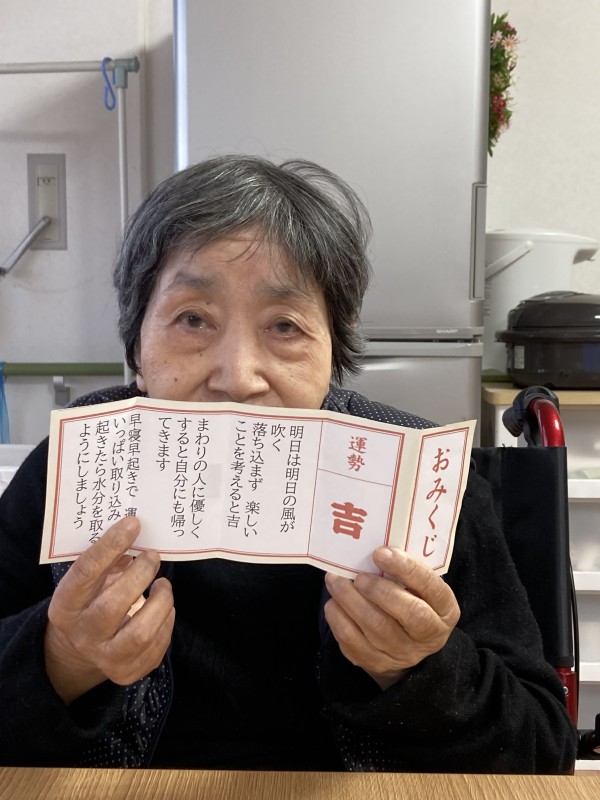 おみくじ
運勢
吉
明日は明日の風が
吹く
落ち込まず 楽しい
ことを考えると吉
まわりの人に優しく
すると自分にも帰っ
てきます
早寝早起きで 運
いっぱい取り込み
起きたら水分を取る
ようにしましょう
SHARP